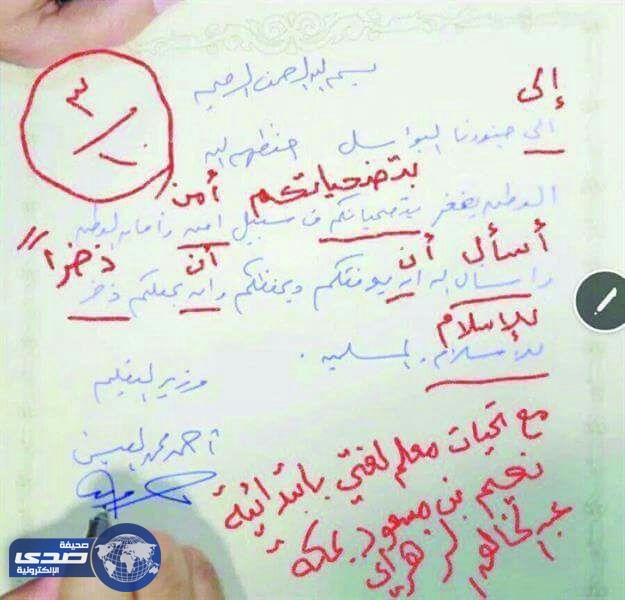 بسم الله الرحمن الرحيم
إلى
٣
١٠
الى جنودنا البواسل حفظهم الله
بتضحياتكم أمن
الوطن يفخر بتضحياتكم في سبيل امن وامان الوطن
أسأل أن أن ذخرا"
واسال الله ان يوفقكم ويحفظكم وان يجعلكم ذخر
للإسلام
للإسلام والمسلمين.
وزير التعليم
أحمد محمد العيسى
مع تحيات معلم لغتي بابتدائية
نعيم بن مسعود بمكة
عبدالخالق الزهراني
صحيفة
صدى
الإلكترونية